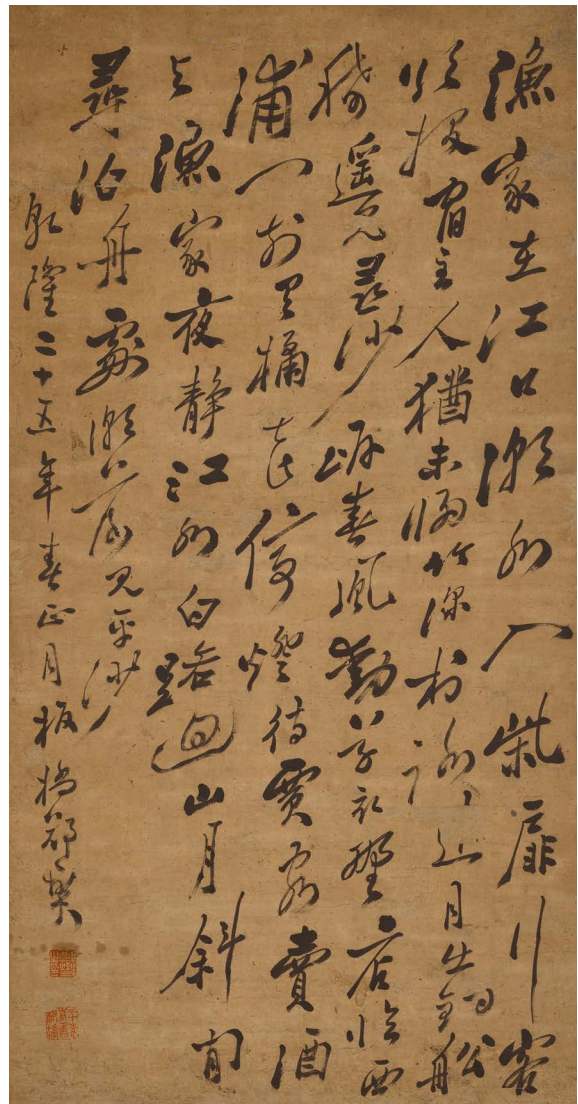 漁家在江口潮水入柴扉行客
欲投宿主人猶未歸竹深村路遠月出釣船
稀遙見尋沙岸春風動草衣野店臨西
浦門前有橘花停燈待賈客賣酒
与漁家夜靜江水白路迴山月斜閒
尋泊舟處潮落見平沙
乾隆二十五年春正月板橋鄭燮